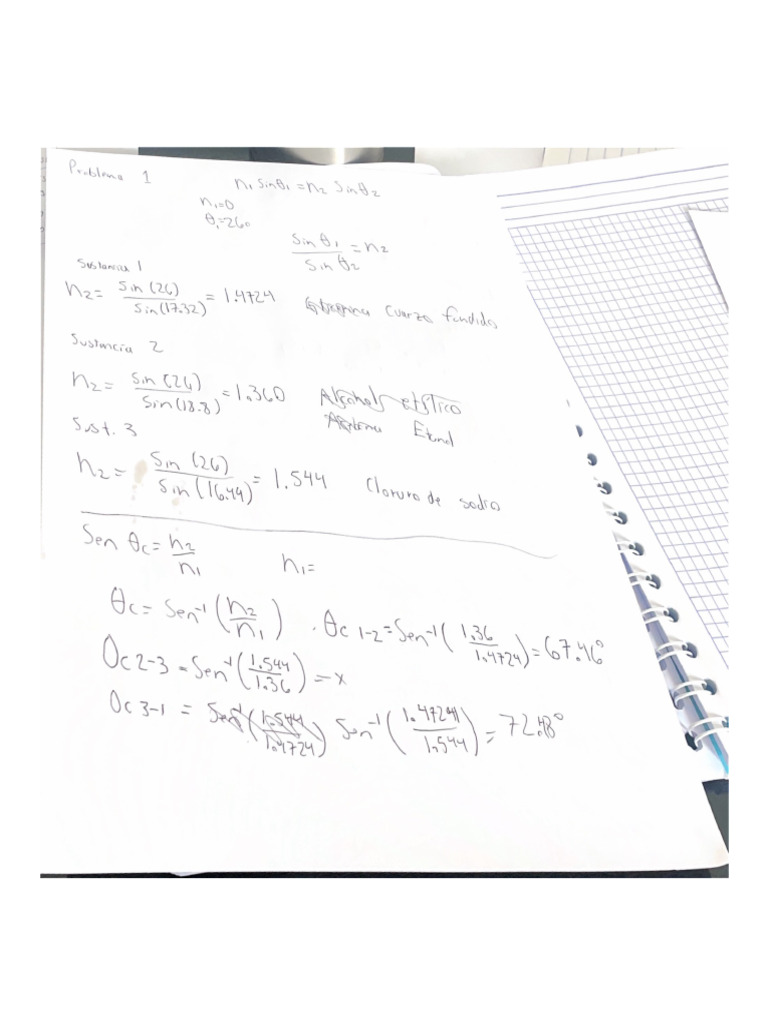 Problema 1
n₁ Sinθ₁ = n₂ Sinθ₂
n₁=0
θ₁=26°
Sin θ₁ / Sin θ₂ = n₂
Sustancia 1
n₂= Sin (26) / Sin(17.32) = 1.4724 cuarzo fundido
Sustancia 2
n₂= Sin (26) / Sin(18.8) = 1.360 Alcohol etílico
Etanol
Sust. 3
n₂= Sin (26) / Sin(16.49) = 1.544 Cloruro de sodio
Sen θc = n₂/n₁ n₁=
θc= Sen⁻¹ (n₂/n₁) . θc 1-2 = Sen⁻¹ (1.36/1.4724) = 67.46°
θc 2-3 = Sen⁻¹ (1.544/1.36) = x
θc 3-1 = Sen⁻¹ (1.544/1.4724) Sen⁻¹ (1.4724/1.544) = 72.48°